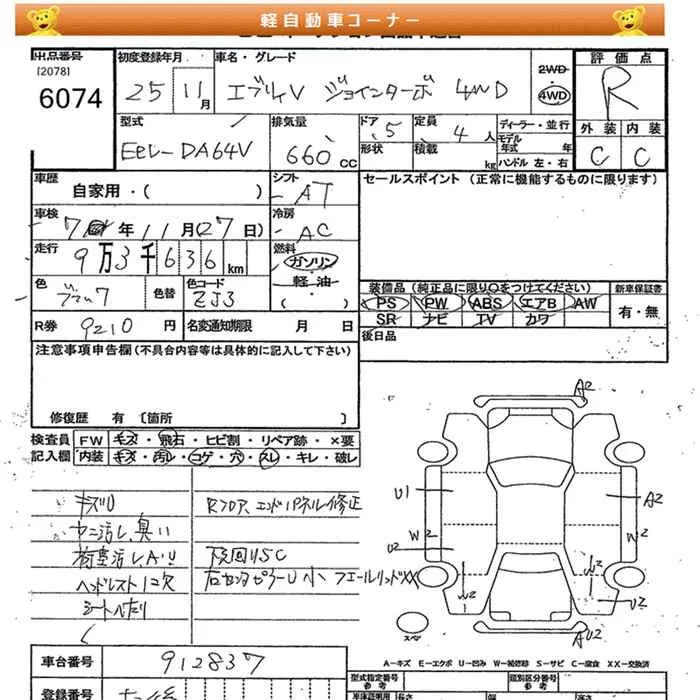 軽自動車コーナー
出品番号 初度登録年月 車名・グレード 2WD 評価点
[2078]
6074 25 11月 エブリイV ジョインターボ 4WD 4WD R
型式 排気量 ドア 5 定員 4人 ディーラー・並行 外装 内装
モデル年式 年
EBD-DA64V 660cc 形状 積載 kg ハンドル 左・右 C C
車歴 シフト セールスポイント (正常に機能するものに限ります)
自家用・( ) AT
車検 冷房
年11月(27日) AC
走行 燃料
9万3千636km ガソリン
軽・油
色 色替 色コード ( ) 装備品(純正品に限り○をつけてください) 新車保証書
ZJ3 PS PW ABS エアB AW 有・無
R券 9210円 名変通知期限 月 日 SR ナビ TV カワ
注意事項申告欄(不具合内容等は具体的に記入して下さい) 後日品
修復歴 有 〔箇所 〕
検査員 FW キズ・飛石・ヒビ割・リペア跡・×要
記入欄 内装 キズ・汚レ・コゲ・穴・スレ・キレ・破レ
キズU Rフロア、エンドパネル修正
ヤニ汚レ、臭い
荷室汚レAU 下廻りSC
ヘッドレスト1欠 右センタピラーU小 フューエルリッドXX
シートへたり
A2
U1 A2
W2 W2
U2
U2
U2
スペア A U2
車台番号 912837
A-キズ E-エクボ U-凹み W-補修跡 S-サビ C-腐食 XX-交換済
型式指定番号 類別区分番号
参考 参考
登録番号 車庫証明用 長さ 幅 高さ